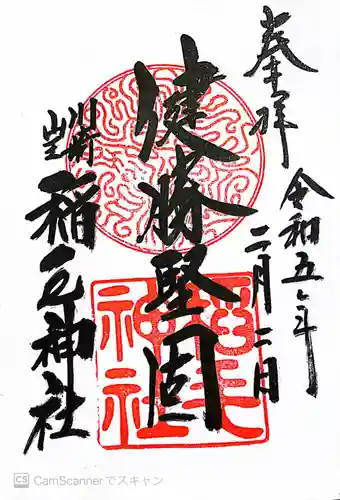 奉拝
令和五年
二月二日
健勝堅固
川崎
山王
稲毛神社
稲毛
神社
CS CamScannerでスキャン